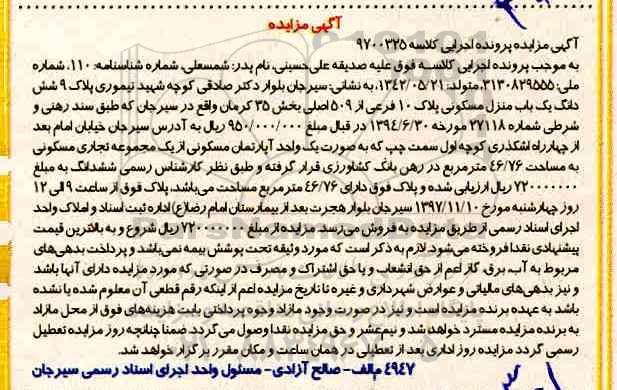 آگهی مزایده
آگهی مزایده پرونده اجرایی کلاسه ۹۷۰۰۳۲۵
به موجب پرونده اجرایی کلاسه فوق علیه صدیقه علی‌حسینی، نام پدر: شمسعلی، شماره شناسنامه: ۱۱۰، شماره
ملی: ۳۱۳۰۸۲۹۵۵۵، متولد: ۱۳۴۲/۰۵/۲۱، به نشانی: سیرجان بلوار دکتر صادقی کوچه شهید تیموری پلاک ۹ شش
دانگ یک باب منزل مسکونی پلاک ۱۰ فرعی از ۵۰۹ اصلی بخش ۳۵ کرمان واقع در سیرجان که طبق سند رهنی و
شرطی شماره ۲۷۱۱۸ مورخه ۱۳۹۴/۶/۳۰ در قبال مبلغ ۹۵۰/۰۰۰/۰۰۰ ریال به آدرس سیرجان خیابان امام بعد
از چهارراه اشکذری کوچه اول سمت چپ که به صورت یک واحد آپارتمان مسکونی از یک مجموعه تجاری مسکونی
به مساحت ۴۶/۷۶ مترمربع در رهن بانک کشاورزی قرار گرفته و طبق نظر کارشناس رسمی ششدانگ به مبلغ
۷۲۰۰۰۰۰۰۰ ریال ارزیابی شده و پلاک فوق دارای ۴۶/۷۶ مترمربع مساحت می‌باشد، پلاک فوق از ساعت ۹ الی ۱۲
روز چهارشنبه مورخ ۱۳۹۷/۱۱/۱۰ سیرجان بلوار هجرت بعد از بیمارستان امام رضا(ع) اداره ثبت اسناد و املاک واحد
اجرای اسناد رسمی از طریق مزایده به فروش می‌رسد. مزایده از مبلغ ۷۲۰۰۰۰۰۰۰ ریال شروع و به بالاترین قیمت
پیشنهادی نقدا فروخته می‌شود. لازم به ذکر است که مورد وثیقه تحت پوشش بیمه نمی‌باشد و پرداخت بدهی‌های
مربوط به آب، برق، گاز اعم از حق انشعاب و یا حق اشتراک و مصرف در صورتی که مورد مزایده دارای آنها باشد
و نیز بدهی‌های مالیاتی و عوارض شهرداری و غیره تا تاریخ مزایده اعم از اینکه رقم قطعی آن معلوم شده یا نشده
باشد به عهده برنده مزایده است و نیز در صورت وجود مازاد وجوه پرداختی بابت هزینه‌های فوق از محل مازاد
به برنده مزایده مسترد خواهد شد و نیم‌عشر و حق مزایده نقدا وصول می گردد. ضمنا چنانچه روز مزایده تعطیل
رسمی گردد مزایده روز اداری بعد از تعطیلی در همان ساعت و مکان مقرر برگزار خواهد شد.
۴۹۴۷ م‌الف - صالح آزادی - مسئول واحد اجرای اسناد رسمی سیرجان